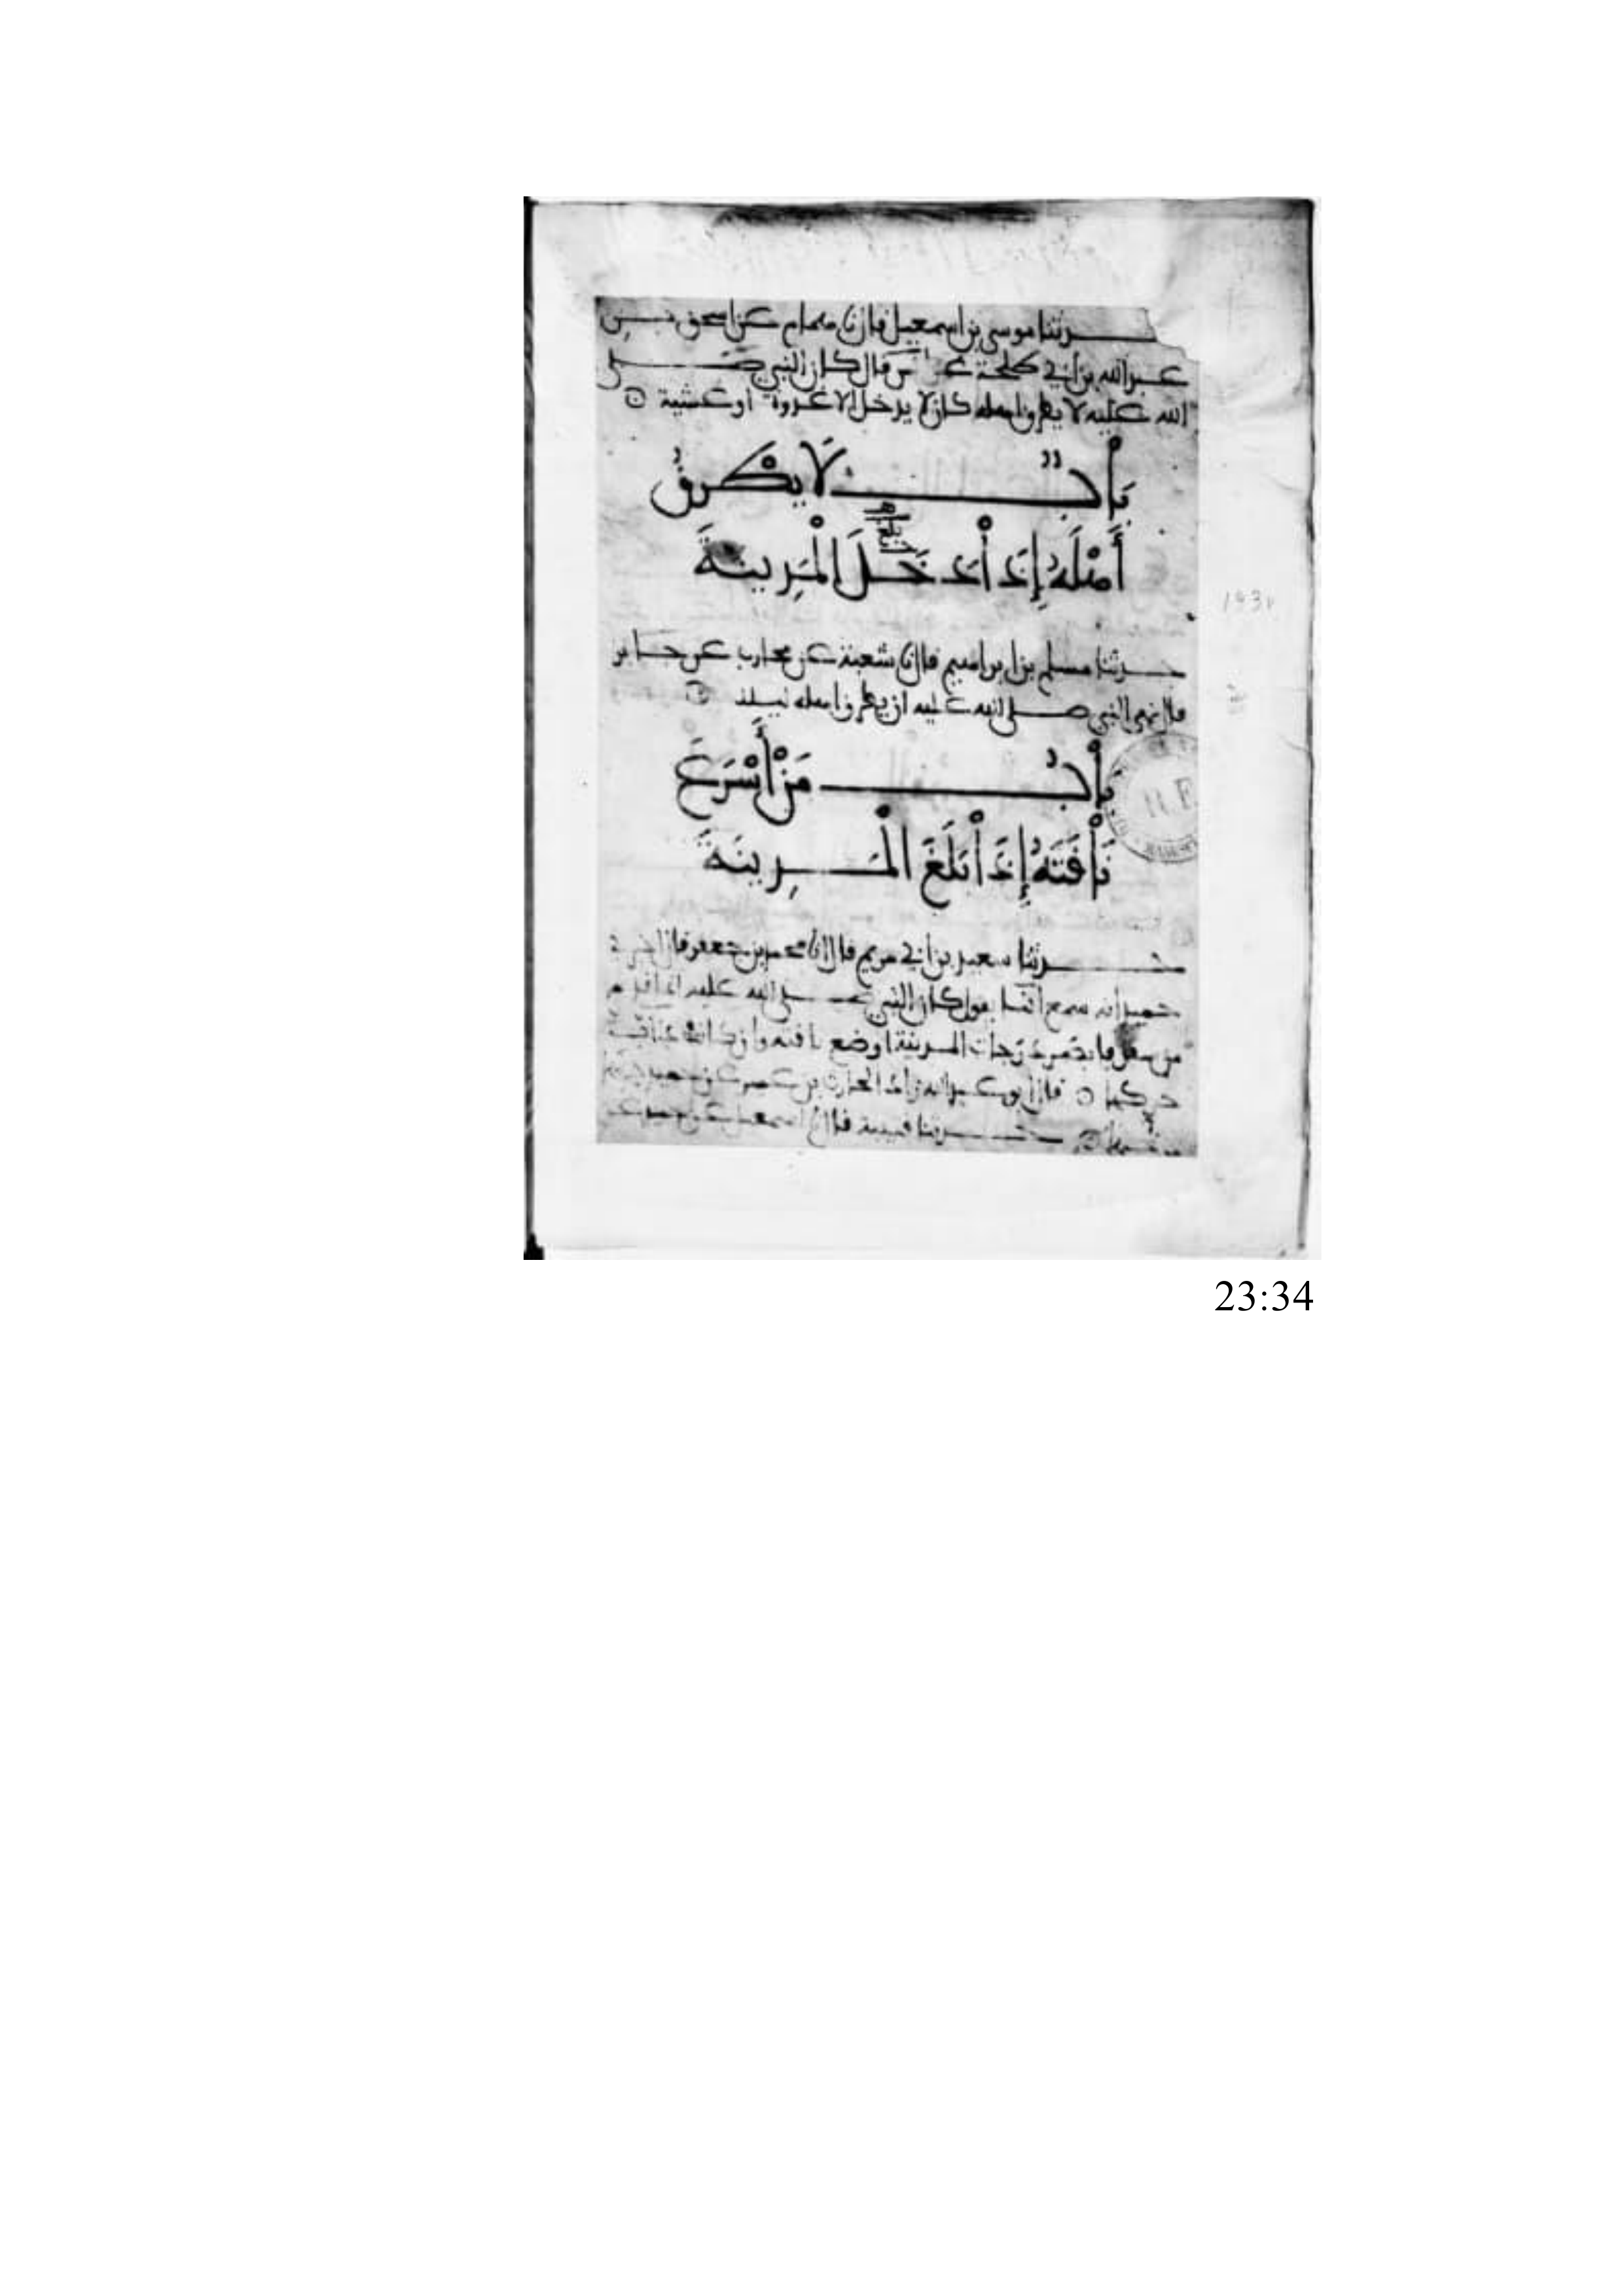 حدثنا موسى بن اسمعيل قال نا همام عن اسحق بن
عبد الله بن أبي طلحة عن انس قال كان النبي صلى
الله عليه لا يطرق اهله كان لا يدخل الا غدوة او عشية
بَابٌ لَا يَطْرُقُ
أَهْلَهُ إِذَا دَخَلَ الْمَدِينَةَ
بلغ
حدثنا مسلم بن ابراهيم قال نا شعبة عن محارب عن جابر
قال نهى النبي صلى الله عليه ان يطرق اهله ليلا
بَابُ مَنْ أَسْرَعَ
نَاقَتَهُ إِذَا بَلَغَ الْمَدِينَةَ
حدثنا سعيد بن ابي مريم قال انا محمد بن جعفر قال اخبرني
حميد انه سمع انسا يقول كان النبي صلى الله عليه اذا قدم
من سفر فابصر درجات المدينة اوضع ناقته وان كانت دابة
حركها قال ابو عبد الله زاد الحارث بن عمير عن حميد حركها
من حبها حدثنا قتيبة قال نا اسمعيل عن حميد عن
23:34